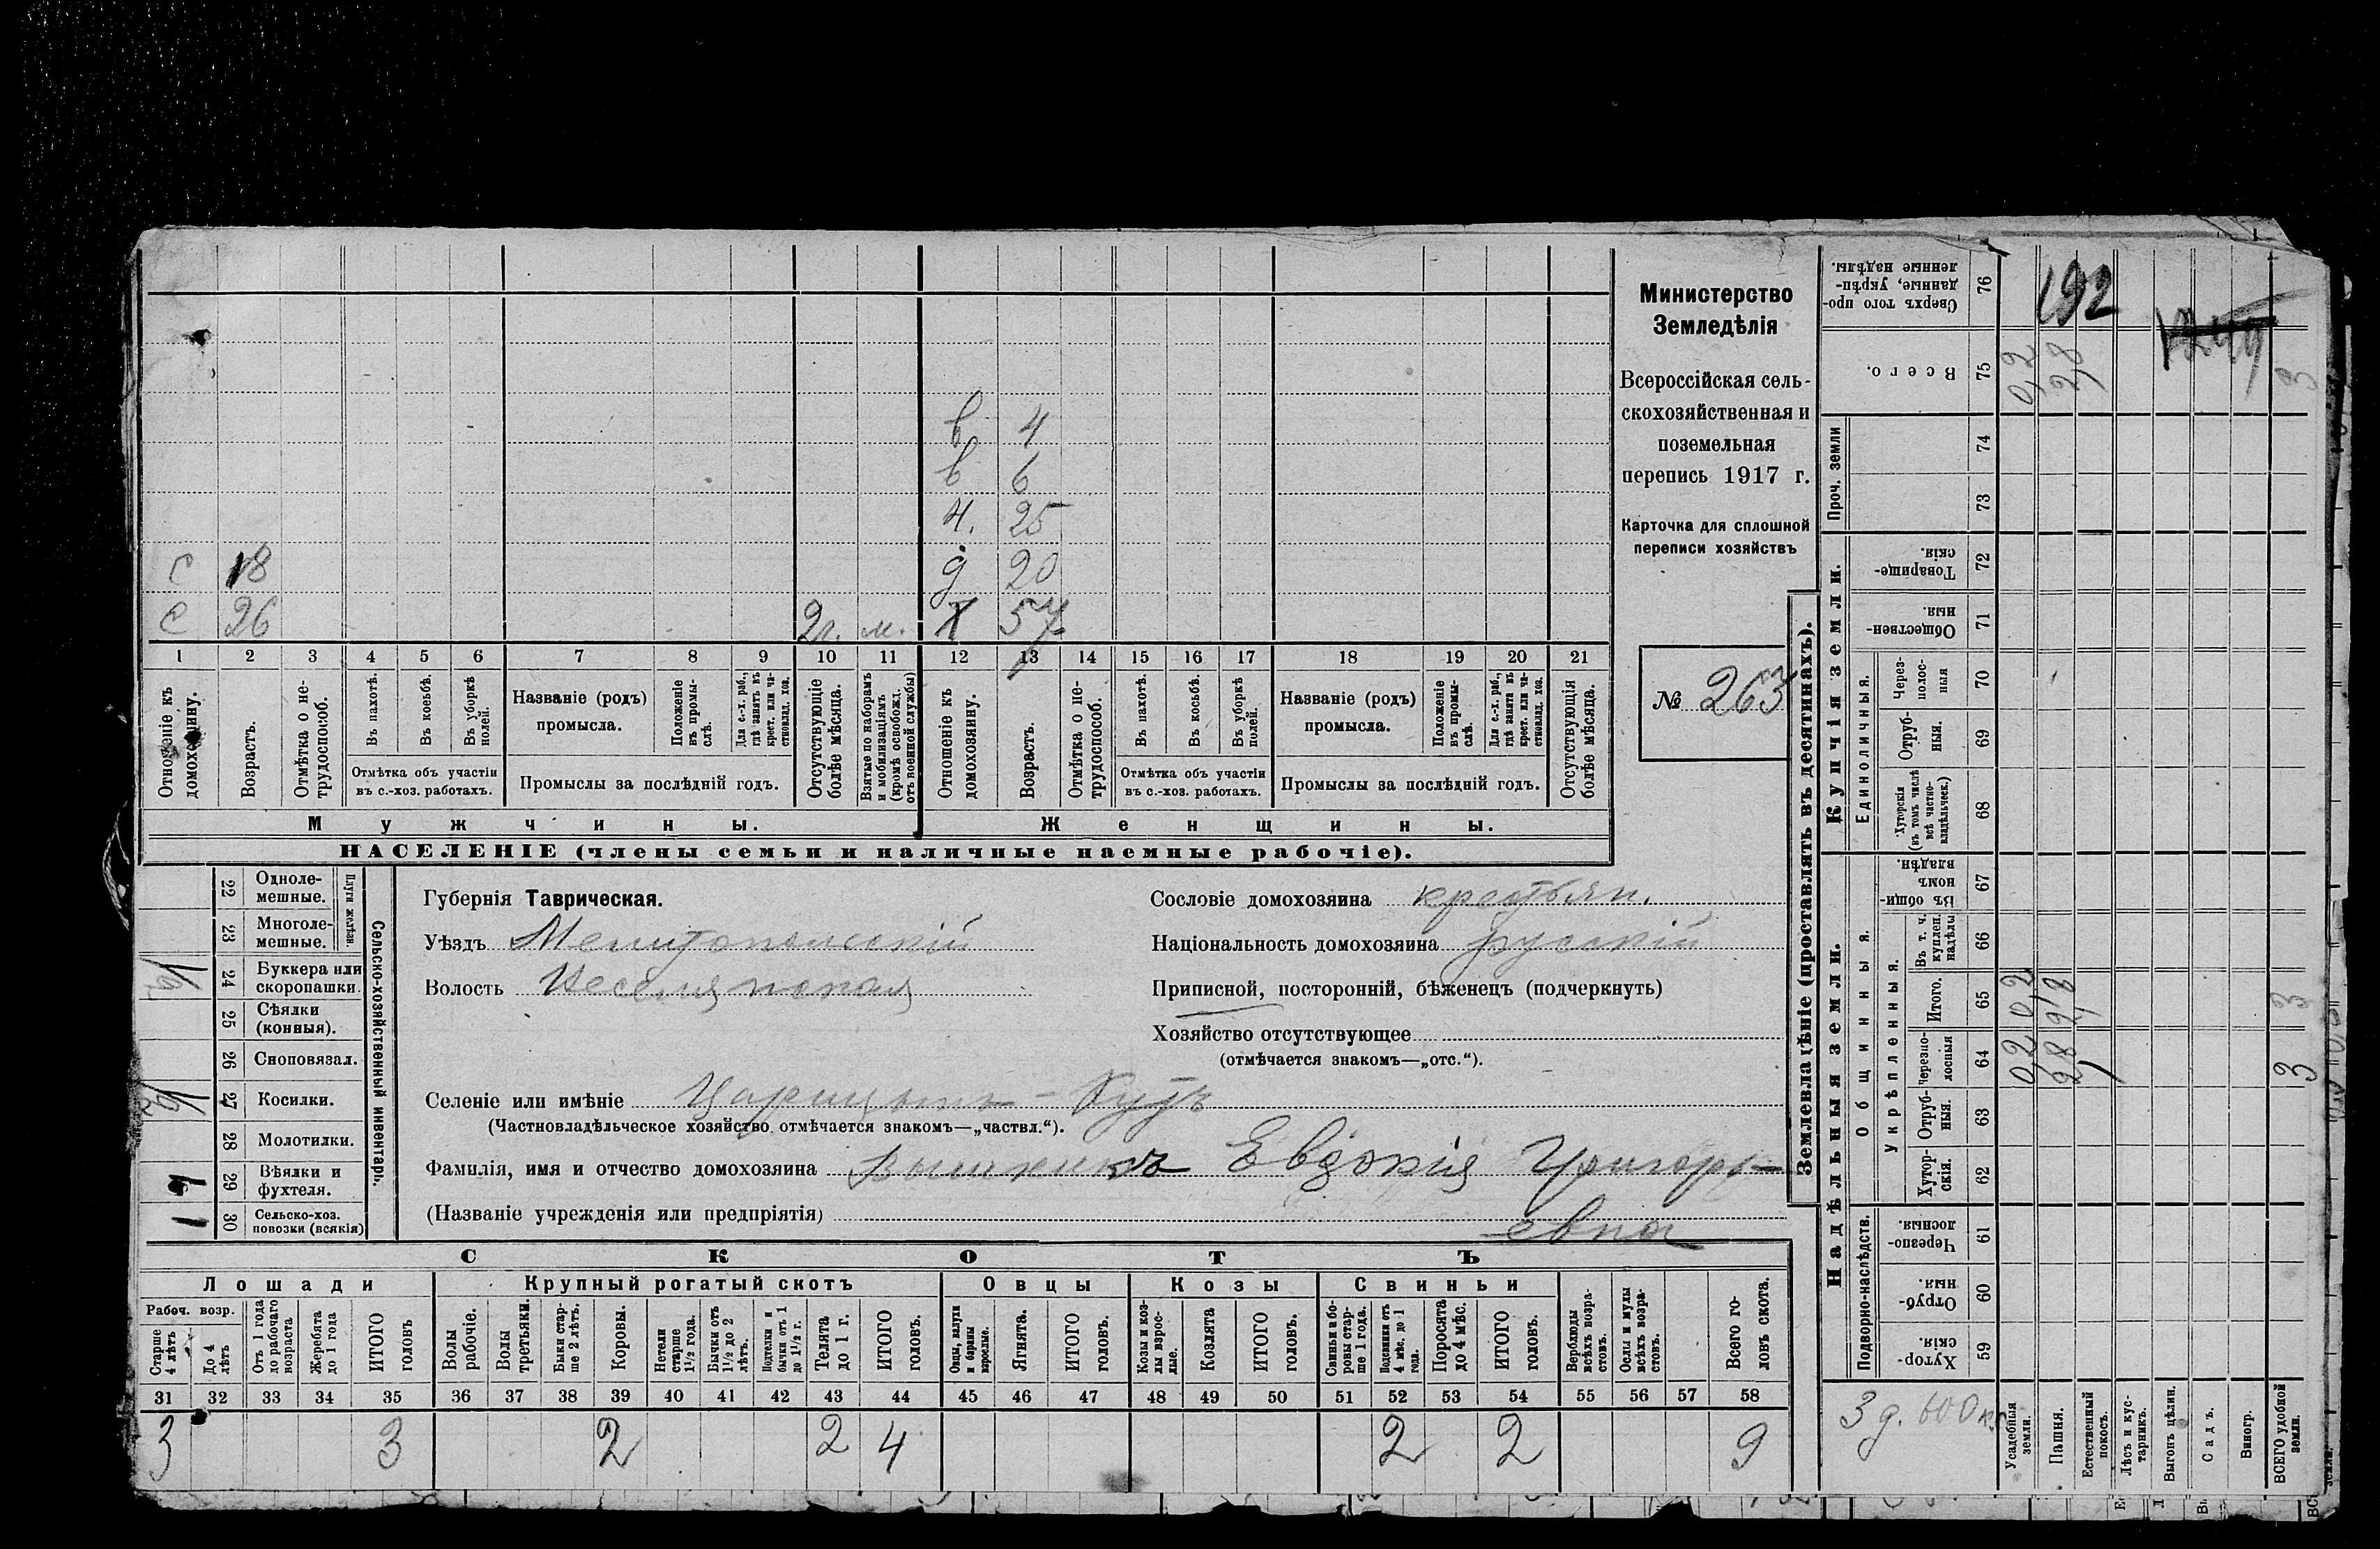 в 4
в 6
н. 25
с 18 д 20
с 26 2г. м. Х 57
1 2 3 4 5 6 7 8 9 10 11 12 13 14 15 16 17 18 19 20 21
Отношеніе къ домохозяину.
Возрастъ.
Отмѣтка о нетрудоспособ.
Въ пахотѣ.
Въ косьбѣ.
Въ уборкѣ полей.
Отмѣтка объ участіи
въ с.-хоз. работахъ.
Названіе (родъ)
промысла.
Положеніе въ промыслѣ.
Для с.-х. раб., гдѣ занятъ въ крест. или частновлад. хоз.
Промыслы за послѣдній годъ.
Отсутствующіе болѣе мѣсяца.
Взятые по наборамъ и мобилизаціямъ (кромѣ освобожд. отъ военной службы)
Отношеніе къ домохозяину.
Возрастъ.
Отмѣтка о нетрудоспособ.
Въ пахотѣ.
Въ косьбѣ.
Въ уборкѣ полей.
Отмѣтка объ участіи
въ с.-хоз. работахъ.
Названіе (родъ)
промысла.
Положеніе въ промыслѣ.
Для с.-х. раб., гдѣ занята въ крест. или частновлад. хоз.
Промыслы за послѣдній годъ.
Отсутствующія болѣе мѣсяца.
Мужчины. Женщины.
НАСЕЛЕНІЕ (члены семьи и наличные наемные рабочіе).
Министерство
Земледѣлія
Всероссійская сель-
скохозяйственная и
поземельная
перепись 1917 г.
Карточка для сплошной
переписи хозяйствъ
№ 263
Сельско-хозяйственный инвентарь.
Плуги желѣзн.
22 Одноле-
мешные.
23 Многоле-
мешные.
24 Буккера или
скоропашки.
25 Сѣялки
(конныя).
26 Сноповязал.
27 Косилки.
28 Молотилки.
1 29 Вѣялки и
фухтеля.
1 30 Сельско-хоз.
повозки (всякія)
Губернія Таврическая.
Уѣздъ Мелитопольскій
Волость Веселянская
Сословіе домохозяина крестьян.
Національность домохозяина русскій
Приписной, посторонній, бѣженецъ (подчеркнуть)
Хозяйство отсутствующее
(отмѣчается знакомъ—„отс.“).
Селеніе или имѣніе Царицынъ-Кутъ
(Частновладѣльческое хозяйство отмѣчается знакомъ—„частвл.“).
Фамилія, имя и отчество домохозяина Евдокія Григорь-
(Названіе учрежденія или предпріятія) евна
СКОТЪ
Лошади Крупный рогатый скотъ Овцы Козы Свиньи
Рабоч. возр.
Старше 4 лѣтъ
До 4 лѣтъ
Отъ 1 года до рабочаго возраста
Жеребята до 1 года
ИТОГО головъ
Волы рабочіе.
Волы третьяки.
Быки старше 2 лѣтъ.
Коровы.
Нетели старше 1½ года.
Бычки отъ 1½ до 2 лѣтъ.
Подтелки и бычки отъ 1 до 1½ г.
Телята до 1 г.
ИТОГО головъ.
Овцы, валухи и бараны взрослые.
Ягнята.
ИТОГО головъ.
Козы и козлы взрослые.
Козлята
ИТОГО головъ.
Свиньи и боровы старше 1 года.
Подсвинки отъ 4 мѣс. до 1 года.
Поросята до 4 мѣс.
ИТОГО головъ.
Верблюды всѣхъ возрастовъ.
Ослы и мулы всѣхъ возрастовъ.
Всего головъ скота.
31 32 33 34 35 36 37 38 39 40 41 42 43 44 45 46 47 48 49 50 51 52 53 54 55 56 57 58
3 3 2 2 4 2 2 9
Землевладѣніе (проставлять въ десятинахъ).
Купчія земли.
Надѣльныя земли.
Сверхъ того проданные, укрѣпленные надѣлы. 76 192
Всего. 75 0,2 2,8 3
Проч. земли 74
73
Товарищескія. 72
Общественныя. 71
Единоличныя.
Черезполосныя 70
Отрубныя. 69
Хуторскія (въ томъ числѣ всѣ частновладѣльческ.) 68
Общинныя.
Въ общинномъ владѣн. 67
Укрѣпленныя.
Въ т. ч. куплен. надѣлы 66
Итого. 65 0,2 2,8 3
Черезполосныя 64 0,2 2,8 3
Отрубныя. 63
Хуторскія. 62
Подворно-наслѣдств.
Черезполосныя. 61
Отрубныя. 60
Хуторскія. 59
3 д. 600
Усадебныя земли.
Пашня.
Естественный покосъ.
Лѣсъ и кустарникъ.
Выгонъ цѣлин.
Садъ.
Виногр.
ВСЕГО удобной земли.